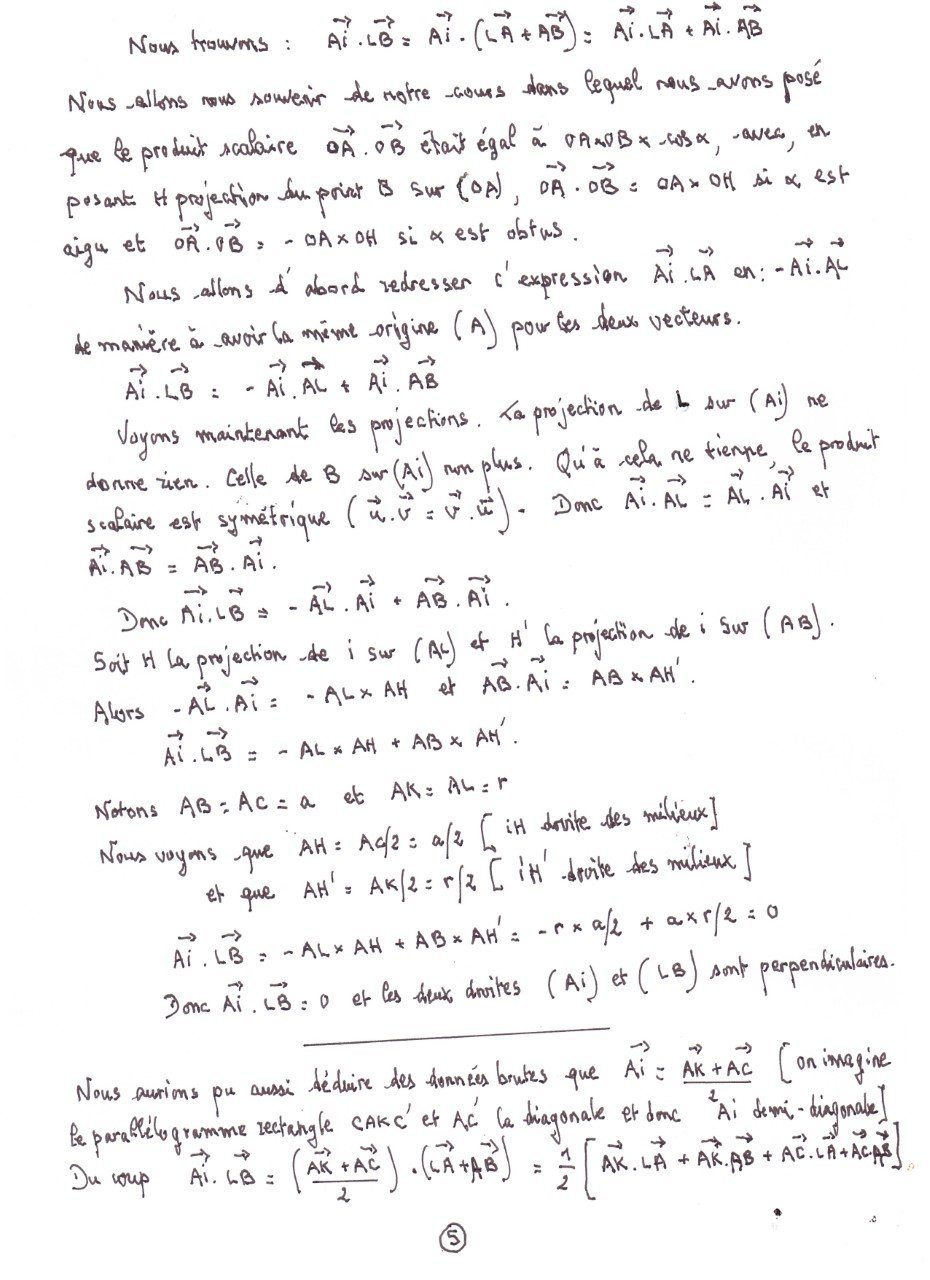 Nous trouvons : Ai . LB = Ai . (LA + AB) = Ai . LA + Ai . AB
Nous allons nous souvenir de notre cours dans lequel nous avons posé
que le produit scalaire OA . OB était égal à OA x OB x cos α, avec, en
posant H projection du point B sur (OA), OA . OB = OA x OH si α est
aigu et OA . OB = - OA x OH si α est obtus.
Nous allons d'abord redresser l'expression Ai . LA en : - Ai . AL
de manière à avoir la même origine (A) pour les deux vecteurs.
Ai . LB = - Ai . AL + Ai . AB
Voyons maintenant les projections. La projection de L sur (Ai) ne
donne rien. Celle de B sur (Ai) non plus. Qu'à cela ne tienne, le produit
scalaire est symétrique (u . v = v . u). Donc Ai . AL = AL . Ai et
Ai . AB = AB . Ai.
Donc Ai . LB = - AL . Ai + AB . Ai.
Soit H la projection de i sur (AL) et H' la projection de i sur (AB).
Alors - AL . Ai = - AL x AH et AB . Ai = AB x AH'.
Ai . LB = - AL x AH + AB x AH'.
Notons AB = AC = a et AK = AL = r
Nous voyons que AH = AC/2 = a/2 [iH droite des milieux]
et que AH' = AK/2 = r/2 [iH' droite des milieux]
Ai . LB = - AL x AH + AB x AH' = - r x a/2 + a x r/2 = 0
Donc Ai . LB = 0 et les deux droites (Ai) et (LB) sont perpendiculaires.
Nous aurions pu aussi déduire des données brutes que Ai = (AK + AC)/2 [on imagine
le parallélogramme rectangle CAKC' et AC' la diagonale et donc Ai demi-diagonale]
Du coup Ai . LB = ((AK + AC)/2) . (LA + AB) = 1/2 [AK . LA + AK . AB + AC . LA + AC . AB]
5